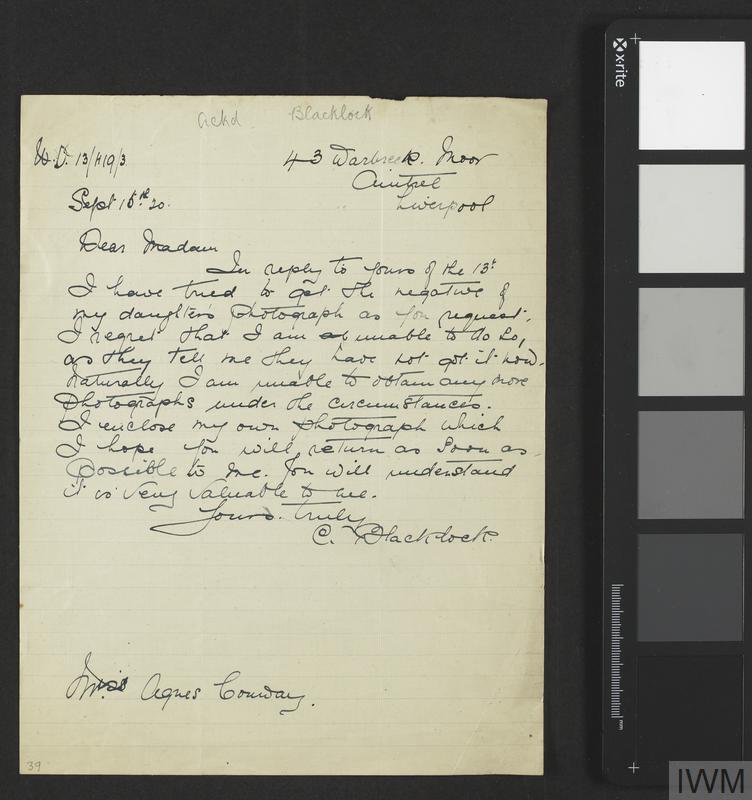 ackd Blacklock
W.D. 13/H19/3
43 Warbreck Moor
Aintree
Liverpool
Sept 15th 20.
Dear Madam
In reply to yours of the 13th
I have tried to get the negative of
my daughters photograph as you request.
I regret that I am unable to do so,
as they tell me they have not got it now.
Naturally I am unable to obtain any more
photographs under the circumstances.
I enclose my own photograph which
I hope you will return as soon as
possible to me. You will understand
it is very valuable to me.
Yours truly
C. Blacklock.
Miss Agnes Conway.
39
x-rite
mm
IWM